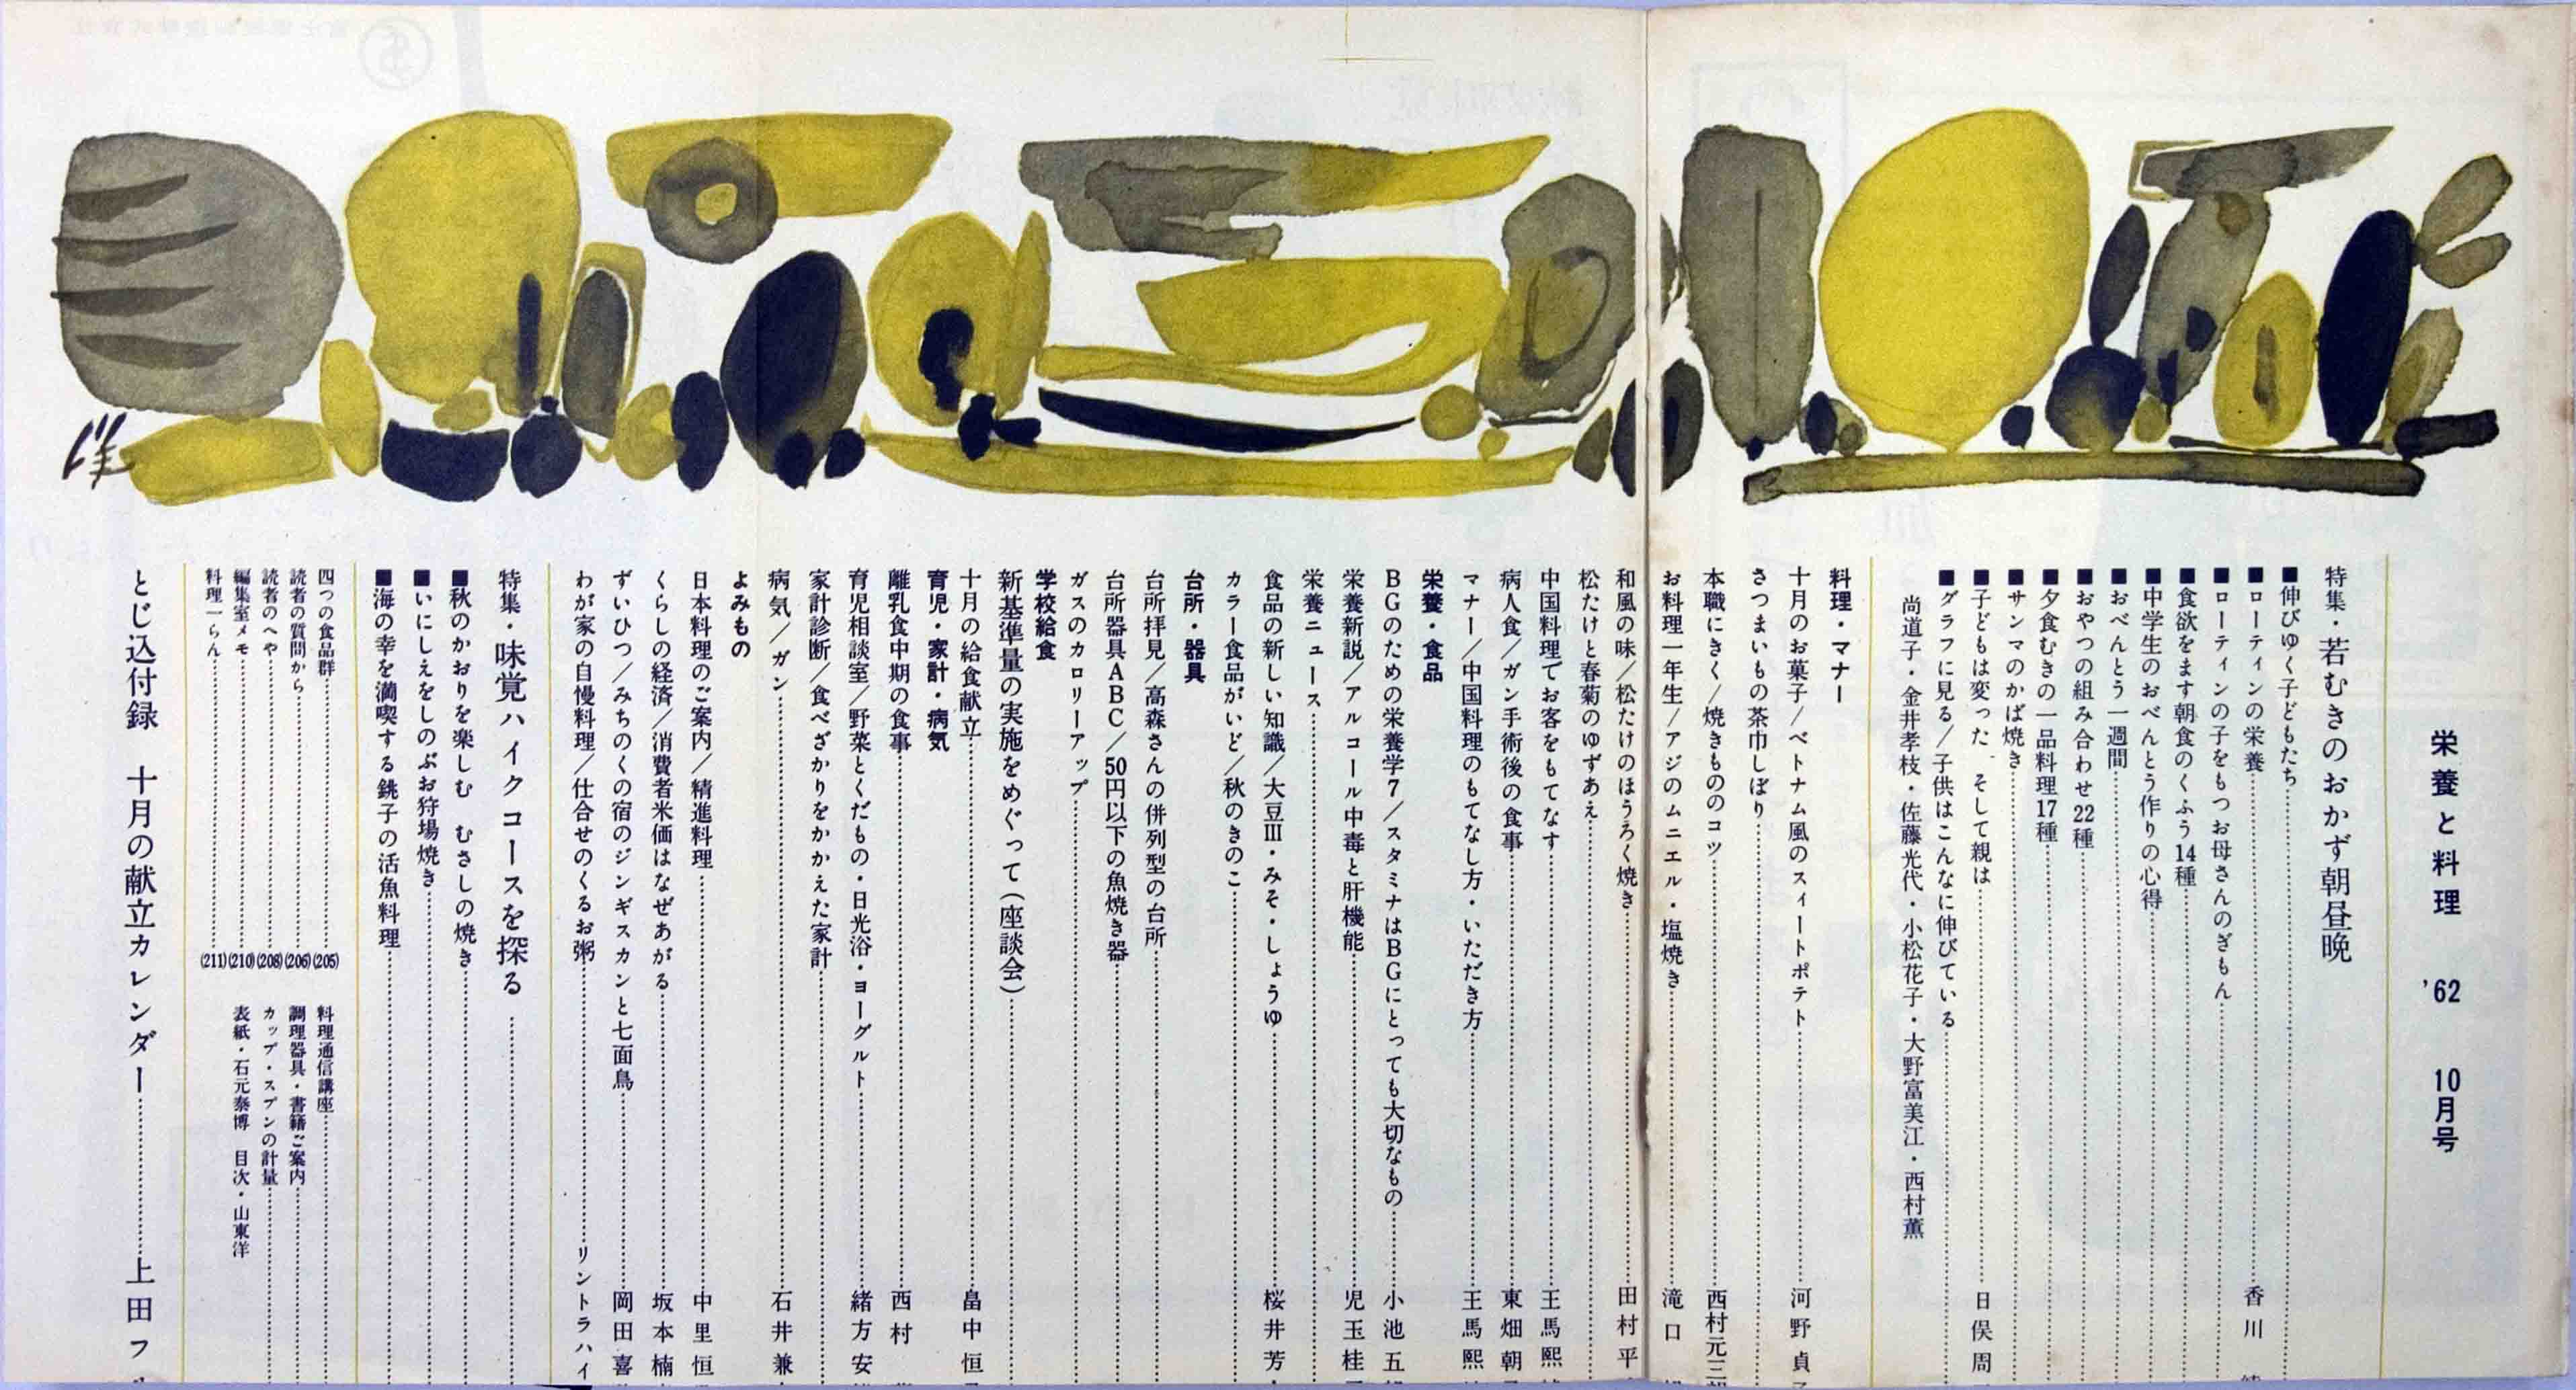 栄養と料理　'62　10月号
特集・若むきのおかず朝昼晩
■伸びゆく子どもたち
■ローティンの栄養 香川
■ローティンの子をもつお母さんのぎもん
■食欲をます朝食のくふう14種
■中学生のおべんとう作りの心得
■おべんとう一週間
■おやつの組み合わせ22種
■夕食むきの一品料理17種
■サンマのかば焼き
■子どもは変った　そして親は 日俣周
■グラフに見る/子供はこんなに伸びている
尚道子・金井孝枝・佐藤光代・小松花子・大野富美江・西村薫
料理・マナー
十月のお菓子/ベトナム風のスィートポテト 河野貞
さつまいもの茶巾しぼり
本職にきく/焼きもののコツ 西村元三
お料理一年生/アジのムニエル・塩焼き 滝口
和風の味/松たけのほうろく焼き 田村平
松たけと春菊のゆずあえ
中国料理でお客をもてなす 王馬熙
病人食/ガン手術後の食事 東畑朝
マナー/中国料理のもてなし方・いただき方 王馬熙
栄養・食品
BGのための栄養学7/スタミナはBGにとっても大切なもの 小池五
栄養新説/アルコール中毒と肝機能 児玉桂
栄養ニュース
食品の新しい知識/大豆Ⅲ・みそ・しょうゆ 桜井芳
カラー食品がいど/秋のきのこ
台所・器具
台所拝見/高森さんの併列型の台所
台所器具ABC/50円以下の魚焼き器
ガスのカロリーアップ
学校給食
新基準量の実施をめぐって(座談会)
十月の給食献立 畠中恒
育児・家計・病気
離乳食中期の食事 西村
育児相談室/野菜とくだもの・日光浴・ヨーグルト 緒方安
家計診断/食べざかりをかかえた家計
病気/ガン 石井兼
よみもの
日本料理のご案内/精進料理 中里恒
くらしの経済/消費者米価はなぜあがる 坂本楠
ずいひつ/みちのくの宿のジンギスカンと七面鳥 岡田喜
わが家の自慢料理/仕合せのくるお粥 リントラハイ
特集・味覚ハイクコースを探る
■秋のかおりを楽しむ　むさしの焼き
■いにしえをしのぶお狩場焼き
■海の幸を満喫する銚子の活魚料理
四つの食品群 (205)
読者の質問から (206)
読者のへや (208)
編集室メモ (210)
料理一らん (211)
料理通信講座
調理器具・書籍ご案内
カップ・スプンの計量
表紙・石元泰博　目次・山東洋
とじ込付録　十月の献立カレンダー 上田フ
洋